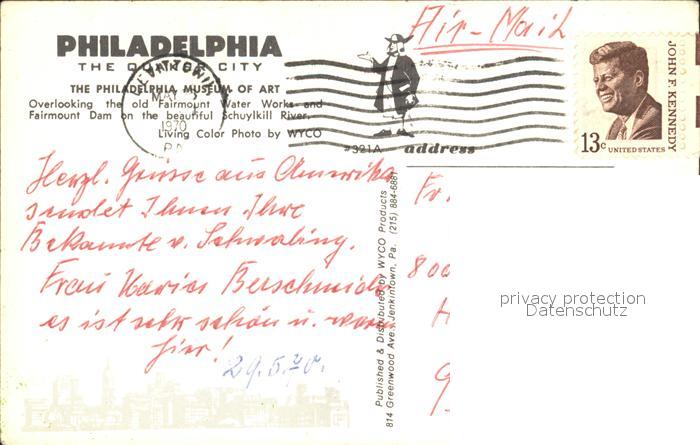 Air-Mail
PHILADELPHIA
THE QUAKER CITY
THE PHILADELPHIA MUSEUM OF ART
Overlooking the old Fairmount Water Works and
Fairmount Dam on the beautiful Schuylkill River.
Living Color Photo by WYCO
MAY
1970
PA
#321A
address
JOHN F. KENNEDY
13c UNITED STATES
Herzl. Grüsse aus Amerika
sendet Ihnen Ihre
Bekannte v. Schwaling.
Frau Maria
es ist sehr schön u. warm
hier!
29.5.70.
Published & Distributed by WYCO Products
814 Greenwood Ave., Jenkintown, Pa. (215) 884-6881
Fr.
800
H
9
privacy protection
Datenschutz